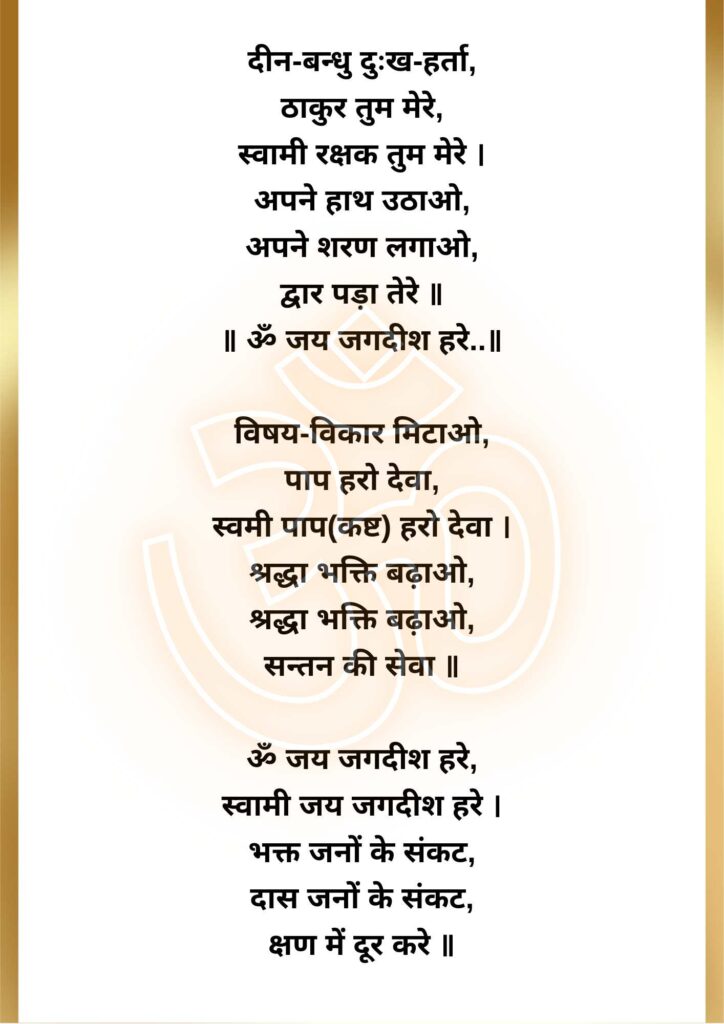 दीन-बन्धु दुःख-हर्ता,
ठाकुर तुम मेरे,
स्वामी रक्षक तुम मेरे ।
अपने हाथ उठाओ,
अपने शरण लगाओ,
द्वार पड़ा तेरे ॥
॥ ॐ जय जगदीश हरे..॥
विषय-विकार मिटाओ,
पाप हरो देवा,
स्वमी पाप(कष्ट) हरो देवा ।
श्रद्धा भक्ति बढ़ाओ,
श्रद्धा भक्ति बढ़ाओ,
सन्तन की सेवा ॥
ॐ जय जगदीश हरे,
स्वामी जय जगदीश हरे ।
भक्त जनों के संकट,
दास जनों के संकट,
क्षण में दूर करे ॥